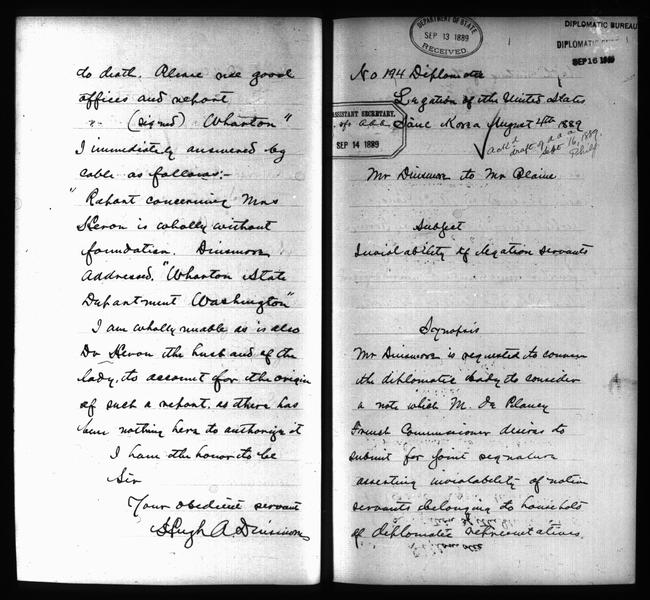 to death. Please use good
offices and report
" (signed) Wharton"
I immediately answered by
cable as follows:-
"Report concerning Mrs
Heron is wholly without
foundation. Dinsmore
Addressed, "Wharton State
Department Washington"
I am wholly unable as is also
Dr Heron the husband of the
lady, to account for the origin
of such a report, as there has
been nothing here to authorize it
I have the honor to be
Sir
Your obedient servant
Hugh A. Dinsmore
DEPARTMENT OF STATE
SEP 13 1889
RECEIVED
DIPLOMATIC BUREAU
DIPLOMATIC
SEP 16 1889
No 194 Diplomatic
Legation of the United States
ASSISTANT SECRETARY,
SEP 14 1889
Korea August 4th 1889
draft
Sept 16, 1889.
Mr Dinsmore to Mr Blaine
Subject
Inviolability of legation servants
Synopsis
Mr Dinsmore is requested to convene
the diplomatic body to consider
a note which M. de Plancy
French Commissioner desires to
submit for joint signature
asserting inviolability of native
servants belonging to household
of diplomatic representatives.